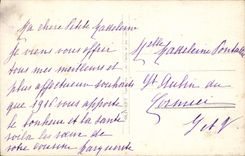 Ma chère Petite Madeleine
je viens vous offrir
tous mes meilleurs et
plus affectueux souhaits
que 1916 vous apporte
le bonheur et la santé
voilà les vœux de
votre cousine Marguerite
Melle Madeleine
St Aubin du
Cormier
I et V